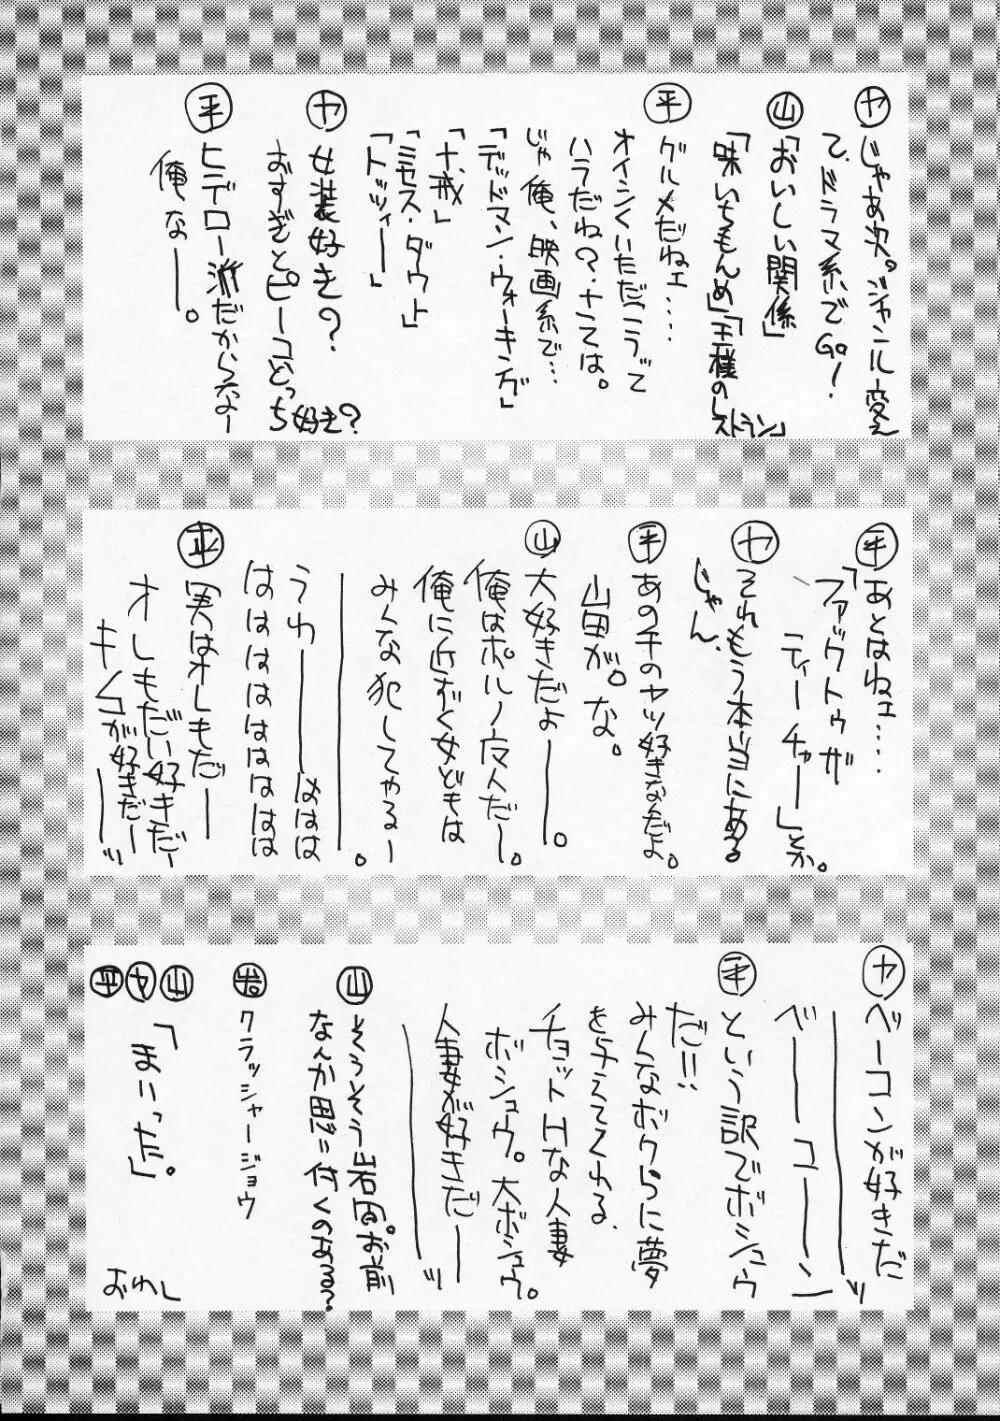 ヤ じゃあ次。ジャンル変え
て、ドラマ系でGO!
山 「おいしい関係」
「味いちもんめ」「王様のレストラン」
平 グルメだねェ・・・・
オイシくいただこうって
ハラだね?さては。
じゃ俺、映画系で…
「デッドマン・ウォーキング」
「十戒」
「ミセス・ダウト」
「トッツィー」
ヤ 女装好き?
おすぎとピーコどっち好き?
平 ヒデロー派だからなー
俺なー。
平 あとはねェ…
「ファックトゥザ
ティーチャー」とか。
ヤ それもう本当にある
じゃん、
平 あの手のヤツ好きなんだよ。
山田が。な。
山 大好きだよー。
俺はポルノ魔人だー。
俺に近ずく女どもは
みんな犯してやるー
ー。
うわーははは
はははははははは
平 実はオレもだー
オレもだい好きだー
キムコが好きだーッ
ヤ ベーコンが好きだ
ーッ
ベーコーン
平 という訳でボシュウ
だ!!
みんなボクらに夢
を与えてくれる
チョットHな人妻
ボシュウ。大ボシュウ。
人妻が好きだー
ーッ
山 そうそう岩田。お前
なんか思い付くのある?
岩 クラッシャージョウ
山ヤ平 「まいった。」
おわし